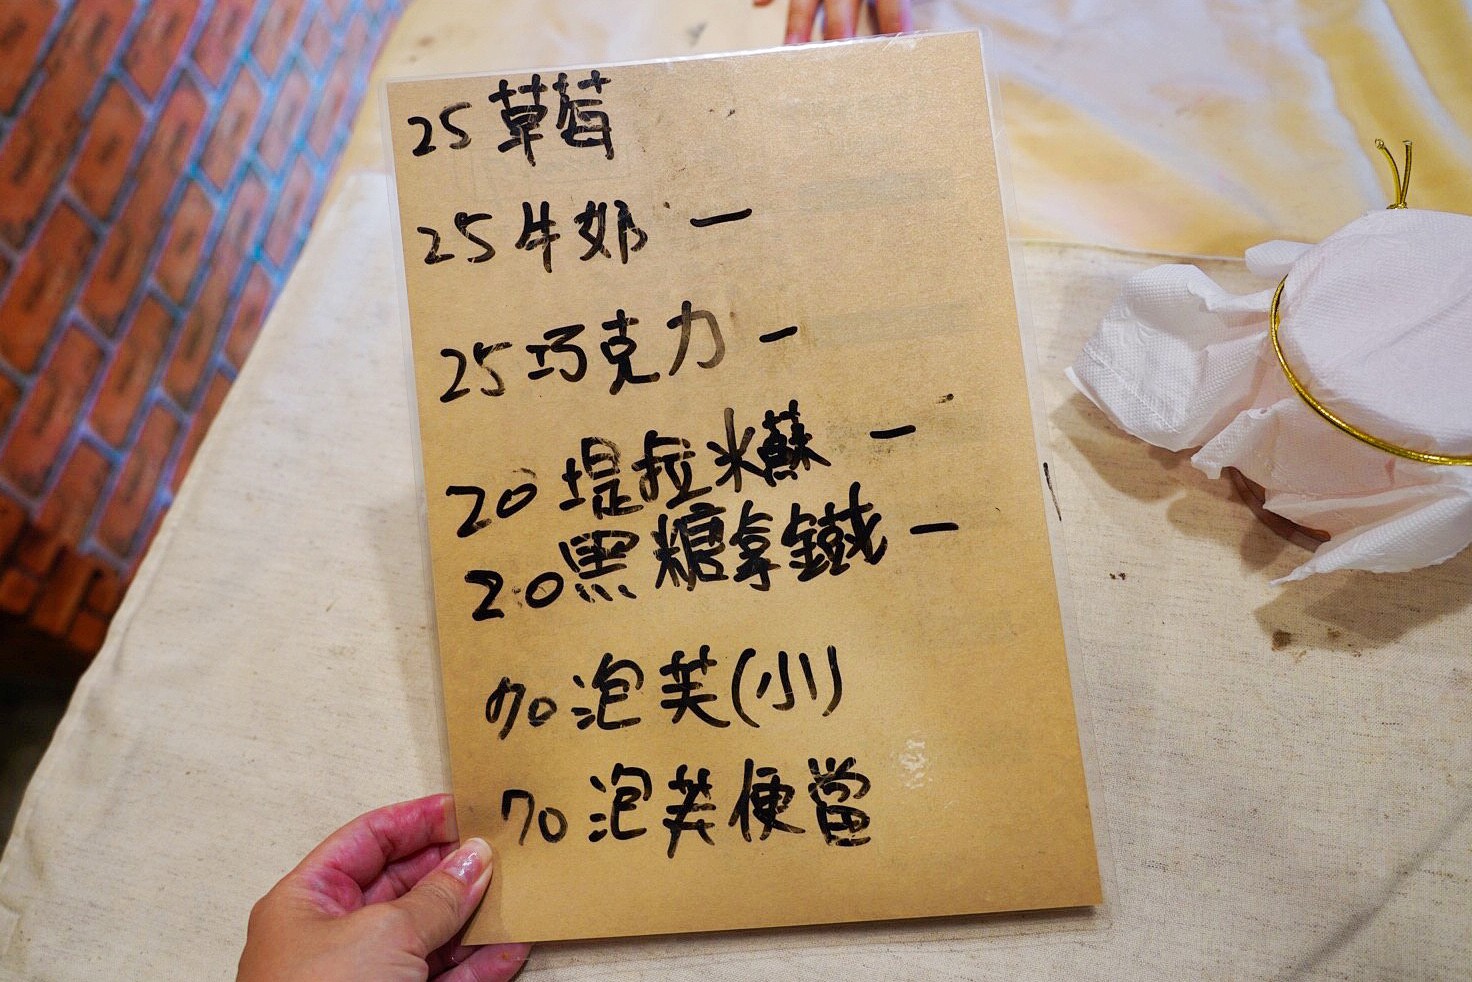 25草莓
25牛奶 一
25巧克力 一
20堤拉米蘇 一
20黑糖拿鐵 一
70泡芙(小)
70泡芙便當